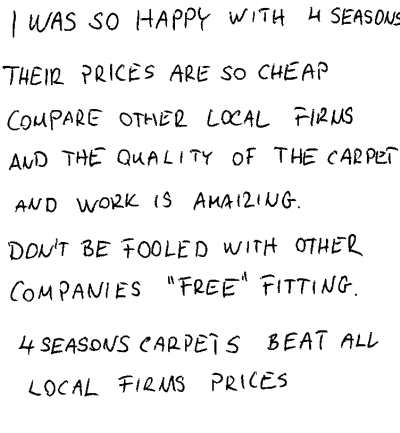 I WAS SO HAPPY WITH 4 SEASONS
THEIR PRICES ARE SO CHEAP
COMPARE OTHER LOCAL FIRMS
AND THE QUALITY OF THE CARPET
AND WORK IS AMAIZING.
DON'T BE FOOLED WITH OTHER
COMPANIES "FREE" FITTING.
4 SEASONS CARPETS BEAT ALL
LOCAL FIRMS PRICES